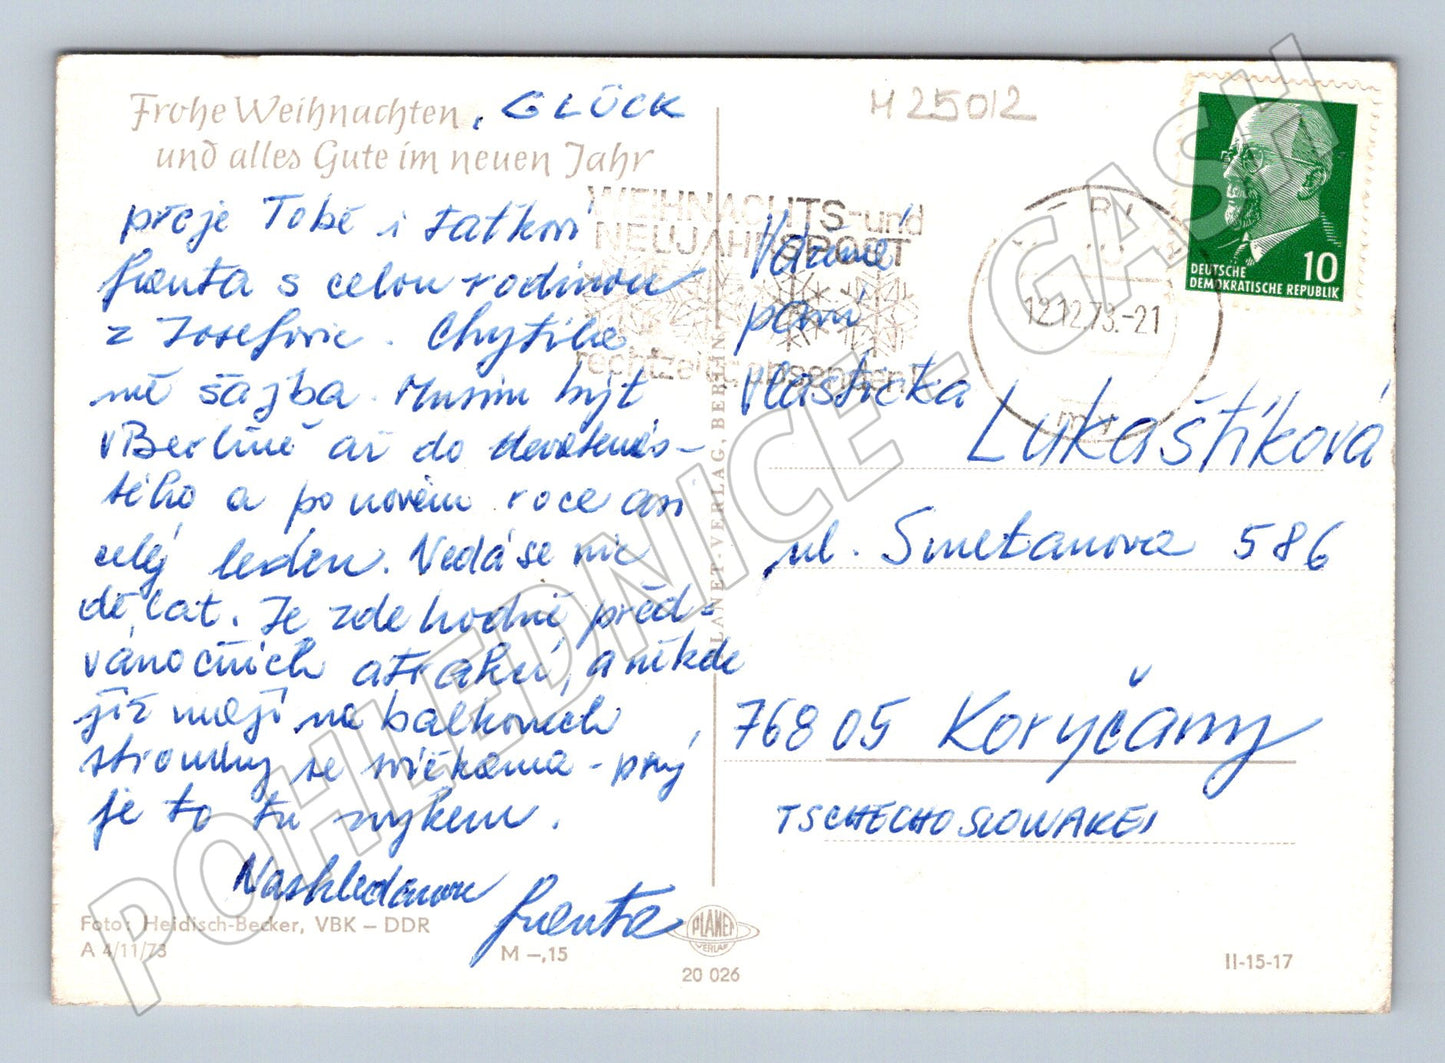 Frohe Weihnachten, GLÜCK
und alles Gute im neuen Jahr
přeje Tobě i taťkovi
Franta s celou rodinou
z Josefovic. Chytila
mě šajba. Musím být
v Berlíně až do devatenác-
tého a po novém roce asi
celý leden. Nedá se nic
dělat. Je zde hodně před-
vánočních atrakcí, a někde
již mají na balkonech
stromky se svíčkama - prý
je to tu zvykem.
Nashledanou Franta
Foto: Heidisch-Becker, VBK – DDR
A 4/11/73
M –,15
PLANET-VERLAG, BERLIN
PLANET
VERLAG
20 026
II-15-17
H 25012
WEIHNACHTS- und
NEUJAHRSPOST
rechtzeitig absenden!
12.12.73.-21
DEUTSCHE
DEMOKRATISCHE REPUBLIK
10
Vážená
paní
Vlastička
Lukaštíková
ul. Smetanova 586
76805 Koryčany
TSCHECHOSLOWAKEI
POHLEDNICE - GASH